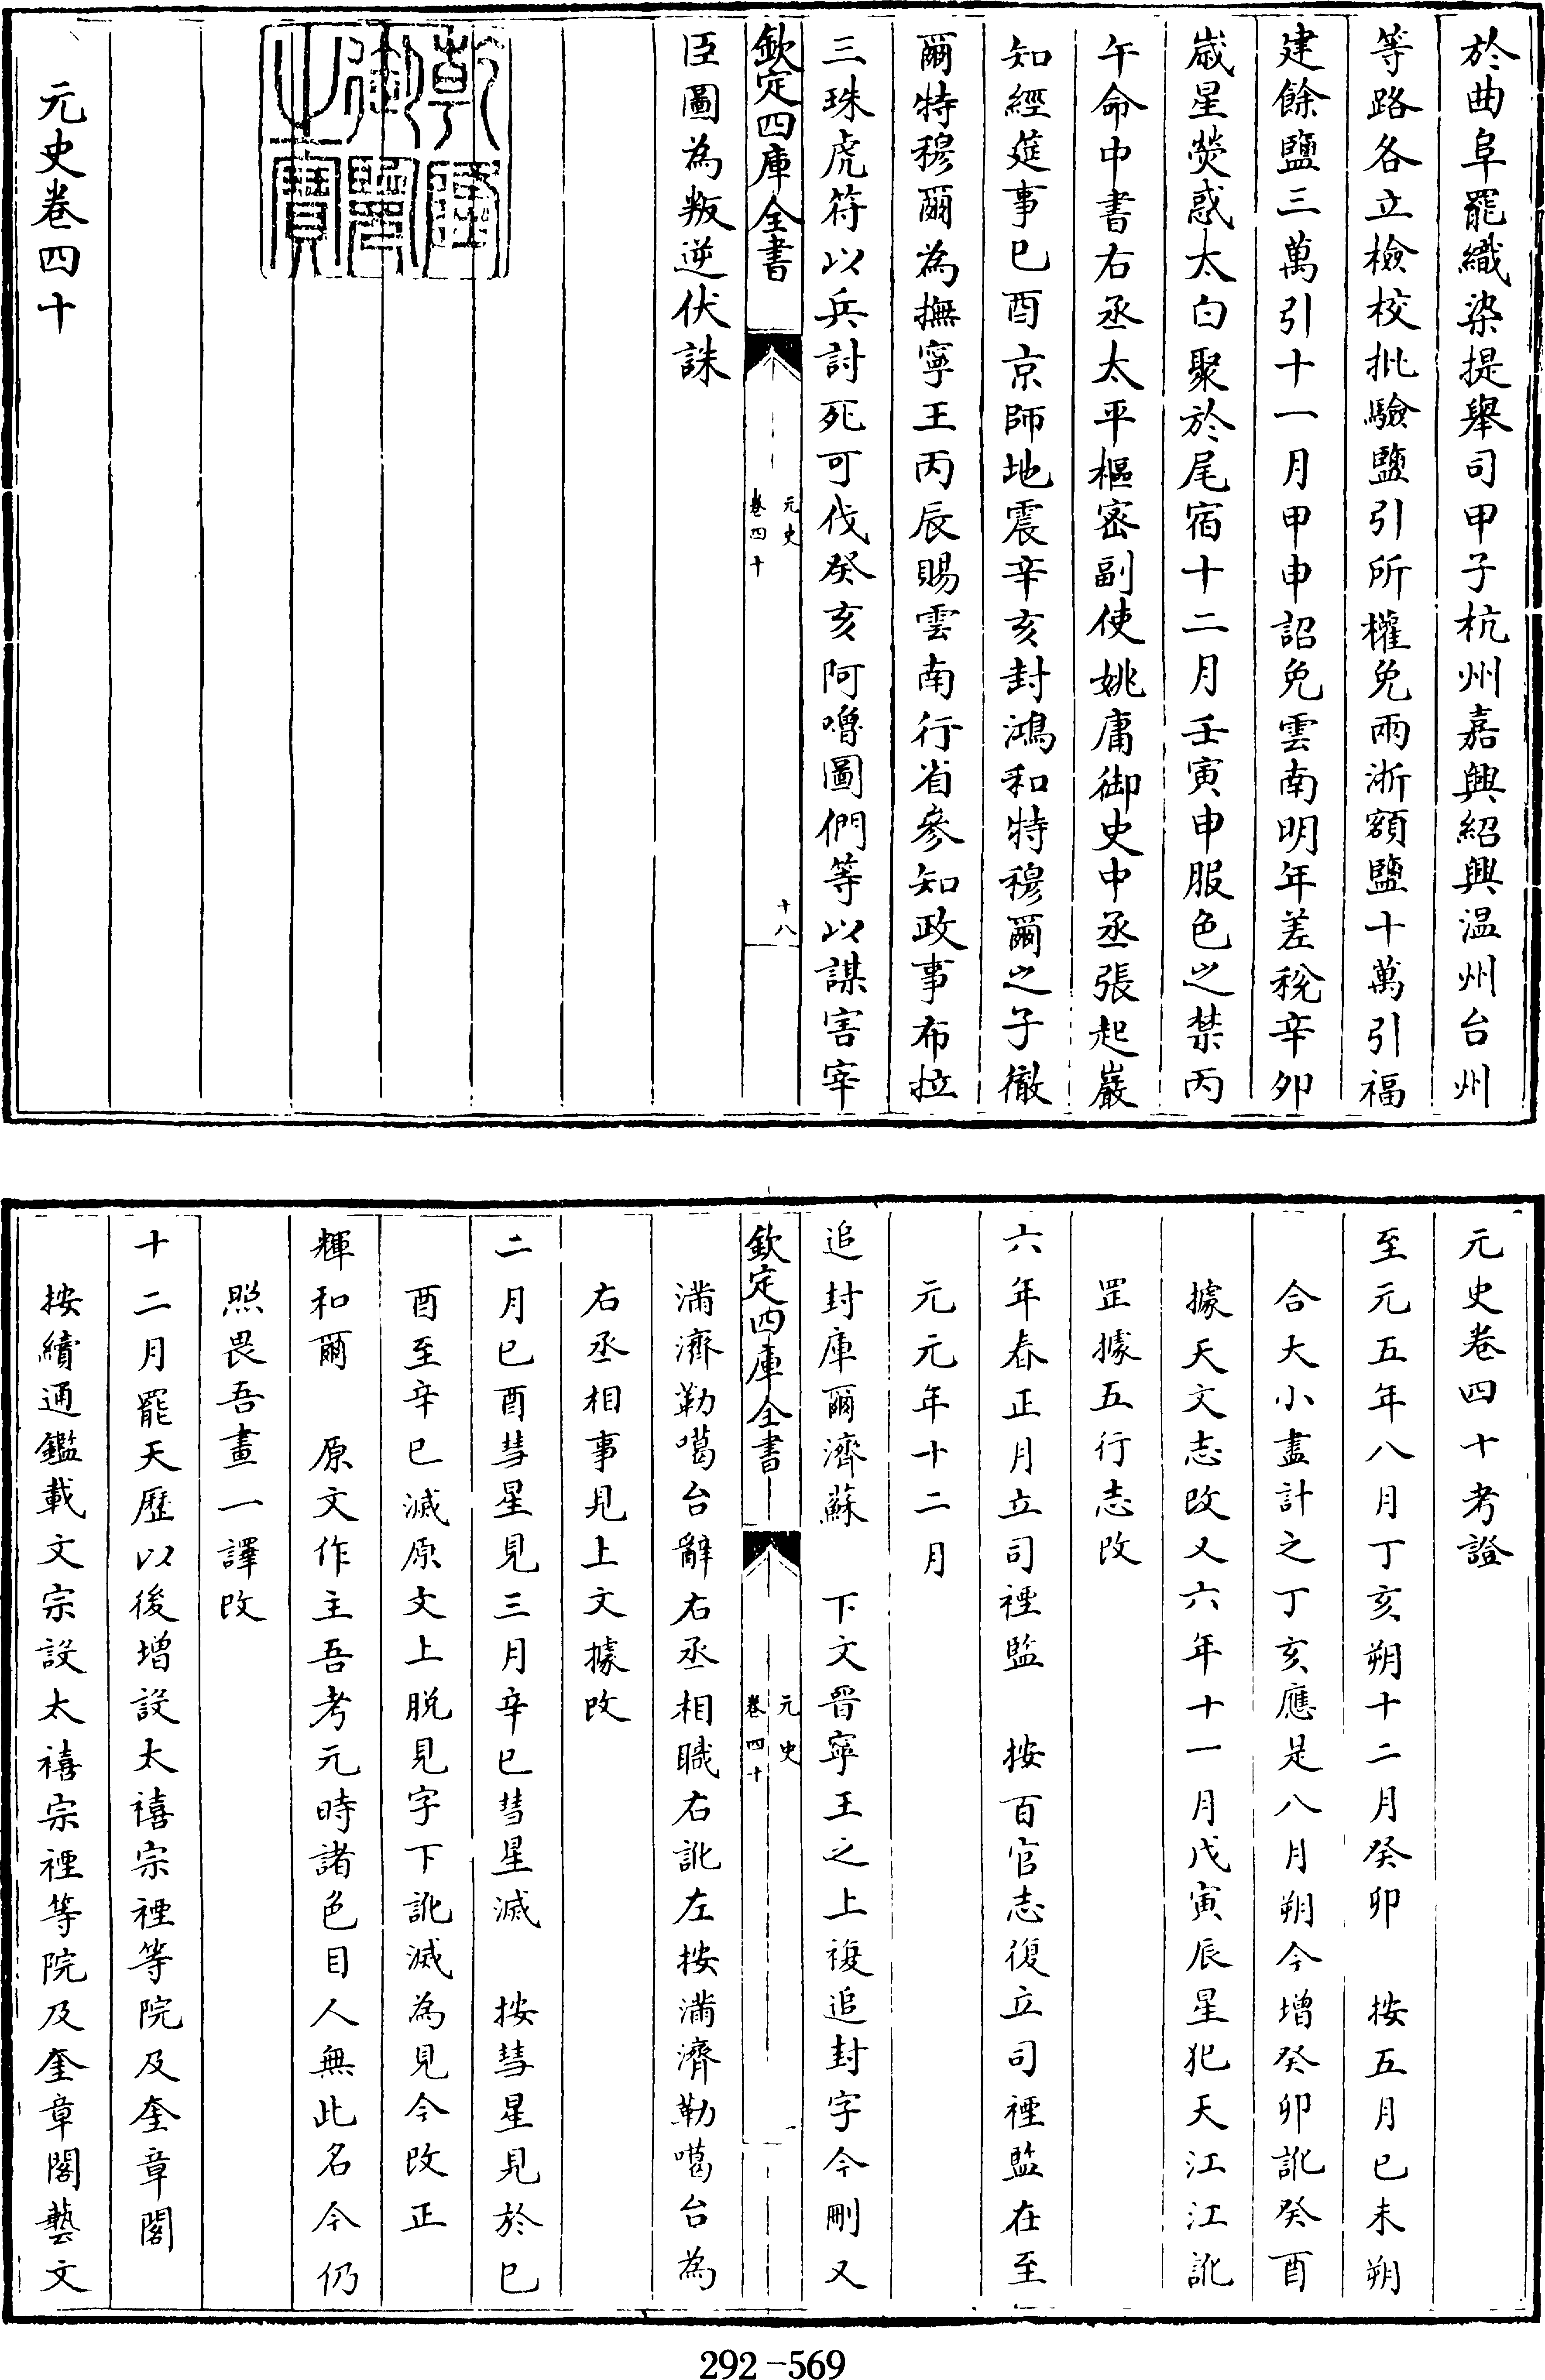 於曲阜罷織染提舉司甲子杭州嘉興紹興温州台州
等路各立檢校批驗鹽引所權免兩浙額鹽十萬引福
建餘鹽三萬引十一月甲申詔免雲南明年差稅辛卯
嵗星熒惑太白聚於尾宿十二月壬寅申服色之禁丙
午命中書右丞太平樞密副使姚庸御史中丞張起巖
知經筵事已酉京師地震辛亥封鴻和特穆爾之子徹
爾特穆爾為撫寧王丙辰賜雲南行省參知政事布拉
三珠虎符以兵討死可伐癸亥阿嚕圖們等以謀害宰
欽定四庫全書
元史
卷四十
十八
臣圖為叛逆伏誅
乾隆御覽之寶
元史卷四十
元史卷四十考證
至元五年八月丁亥朔十二月癸卯 按五月已未朔
合大小盡計之丁亥應是八月朔今增癸卯訛癸酉
據天文志改又六年十一月戊寅辰星犯天江江訛
罡據五行志改
六年春正月立司禋監 按百官志復立司禋監在至
元元年十二月
追封庫爾濟蘇 下文晉寧王之上複追封字今刪又
欽定四庫全書
元史
卷四十
一
滿濟勒噶台辭右丞相職右訛左按滿濟勒噶台為
右丞相事見上文據改
二月已酉彗星見三月辛已彗星滅 按彗星見於已
酉至辛已滅原文上脱見字下訛滅為見今改正
輝和爾 原文作主吾考元時諸色目人無此名今仍
照畏吾畫一譯改
十二月罷天歷以後增設太禧宗禋等院及奎章閣
按續通鑑載文宗設太禧宗禋等院及奎章閣藝文
292-569